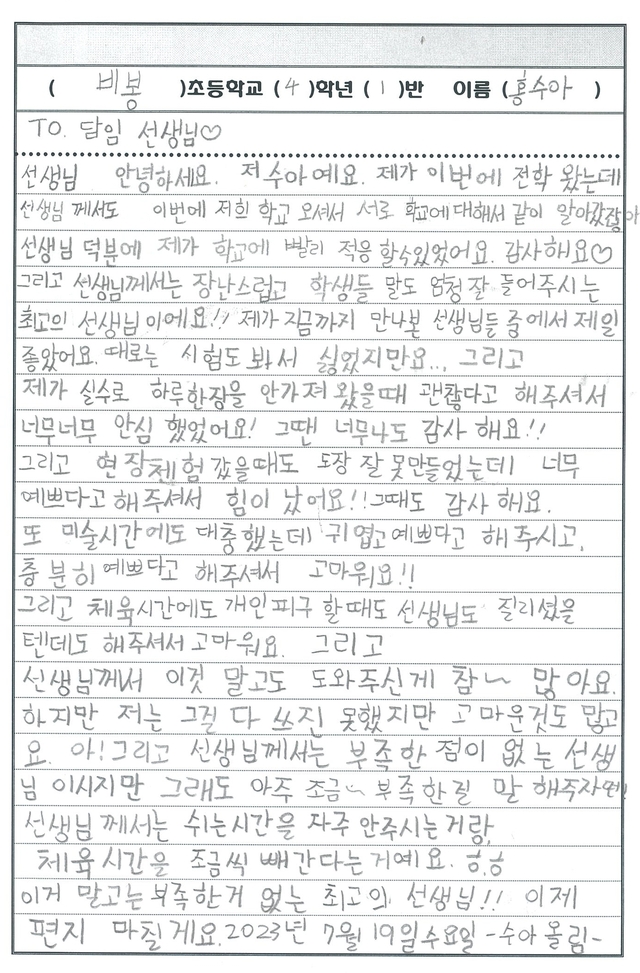 ( 비봉 )초등학교 (4)학년 (1)반 이름 (홍수아 )
TO. 담임 선생님♡
선생님 안녕하세요. 저 수아예요. 제가 이번에 전학 왔는데
선생님 께서도 이번에 저희 학교 오셔서 서로 학교에 대해서 같이 알아갔잖아
선생님 덕분에 제가 학교에 빨리 적응 할수있었어요. 감사해요♡
그리고 선생님께서는 장난스럽고 학생들 말도 엄청 잘 들어주시는
최고의 선생님이에요!! 제가 지금까지 만나본 선생님들 중에서 제일
좋았어요. 때로는 시험도 봐서 싫었지만요... 그리고
제가 실수로 하루한장을 안가져 왔을때 괜찮다고 해주셔서
너무너무 안심 했었어요! 그땐 너무나도 감사 해요!!
그리고 현장체험 갔을때도 도장 잘 못만들었는데 너무
예쁘다고 해주셔서 힘이 났어요!! 그때도 감사 해요.
또 미술시간에도 대충했는데 귀엽고 예쁘다고 해주시고,
충분히 예쁘다고 해주셔서 고마워요!!
그리고 체육시간에도 개인피구 할때도 선생님도 질리셨을
텐데도 해주셔서 고마워요. 그리고
선생님께서 이것 말고도 도와주신게 참~ 많아요.
하지만 저는 그걸 다 쓰진 못했지만 고마운것도 많고
요. 아! 그리고 선생님께서는 부족한 점이 없는 선생
님 이시지만 그래도 아주 조금~ 부족한걸 말 해주자면!
선생님께서는 쉬는시간을 자주 안주시는거랑,
체육시간을 조금씩 빼간다는거예요. ㅎ.ㅎ
이거 말고는 부족한거 없는 최고의 선생님!! 이제
편지 마칠게요. 2023년 7월 19일 수요일 -수아 올림-